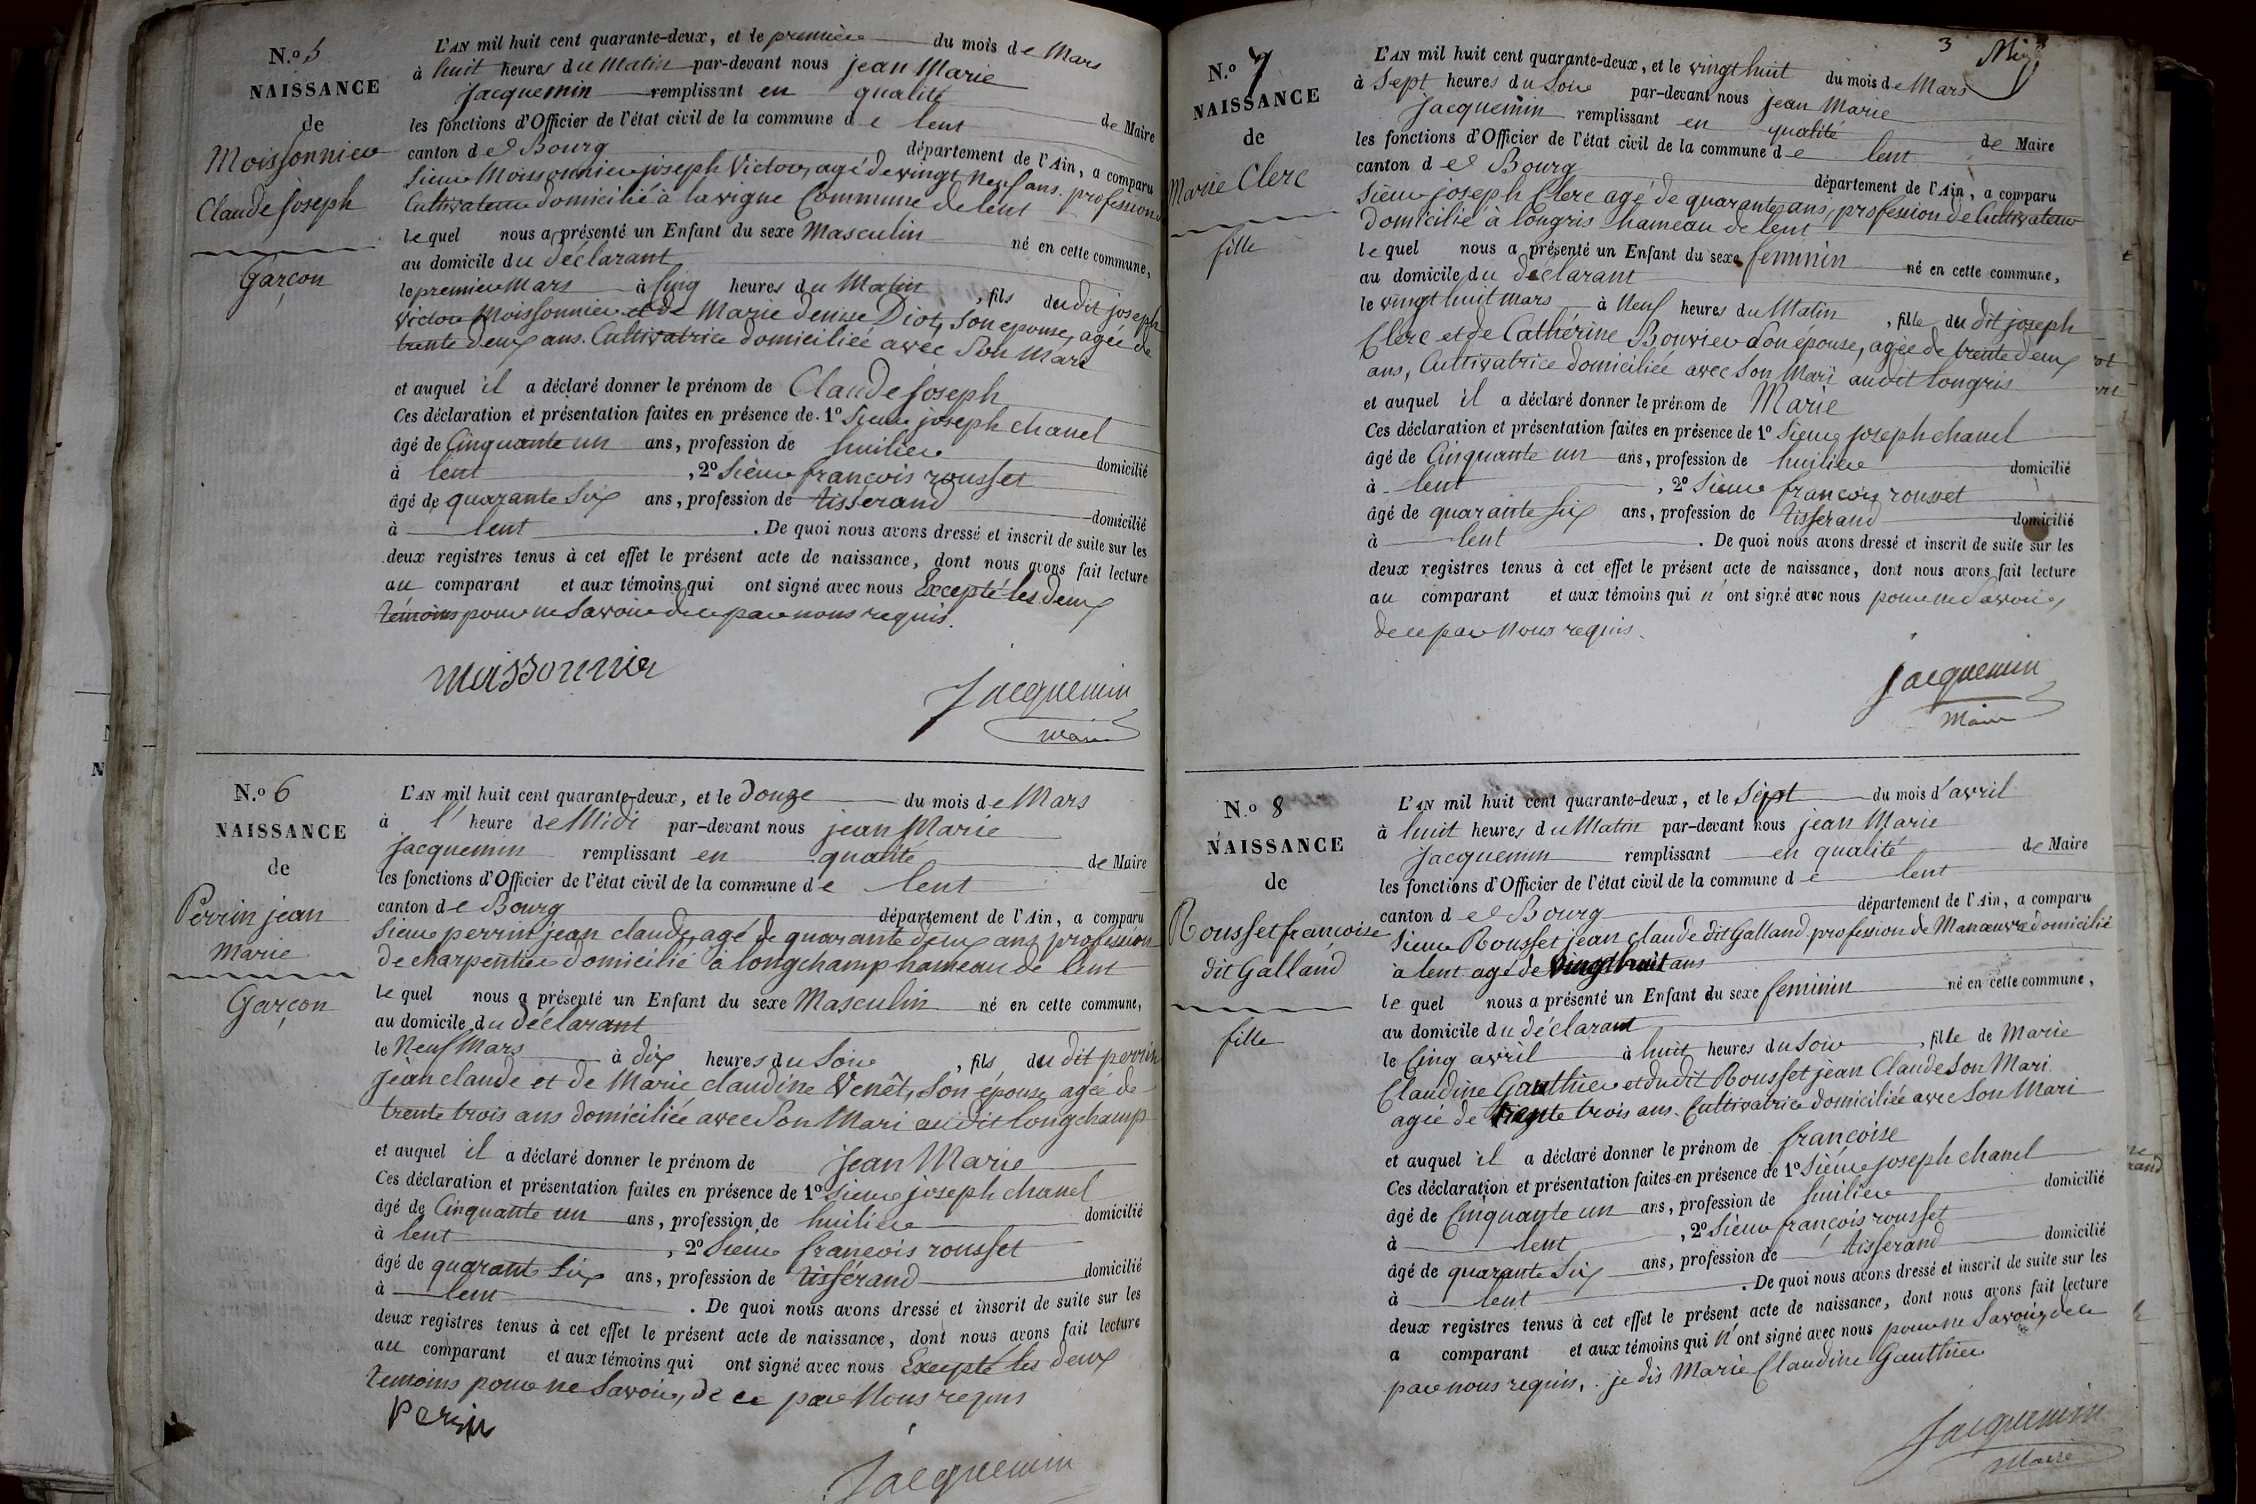 N.o 5
NAISSANCE
de
Moissonnier
Claude joseph
Garçon
L'AN mil huit cent quarante-deux, et le premier du mois de Mars
à huit heures du Matin par-devant nous jean Marie
Jacquemin remplissant en qualité de Maire
les fonctions d'Officier de l'état civil de la commune de lent
canton de Bourg département de l'Ain, a comparu
Sieur Moissonnier joseph Victor, agé de vingt Neuf ans. profession
Cultivateur domicilié à la vigne Commune de lent
lequel nous a présenté un Enfant du sexe Masculin né en cette commune,
au domicile du déclarant
le premier Mars à Cinq heures du Matin, fils du dit joseph
Victor Moissonnier et de Marie denise Diot, Son épouse, agée de
trente deux ans. Cultivatrice domiciliée avec Son Mari
et auquel il a déclaré donner le prénom de Claude joseph
Ces déclaration et présentation faites en présence de 1º Sieur joseph chanel
âgé de Cinquante un ans, profession de huilier domicilié
à lent, 2º Sieur françois rousset
âgé de quarante Six ans, profession de tisserand domicilié
à lent. De quoi nous avons dressé et inscrit de suite sur les
deux registres tenus à cet effet le présent acte de naissance, dont nous avons fait lecture
au comparant et aux témoins qui ont signé avec nous Excepté les deux
témoins pour ne Savoir de ce par nous requis.
Moissonnier
Jacquemin
Maire
N.o 6
NAISSANCE
de
Perrin jean
Marie
Garçon
L'AN mil huit cent quarante-deux, et le douze du mois de Mars
à l'heure de Midi par-devant nous jean Marie
Jacquemin remplissant en qualité de Maire
les fonctions d'Officier de l'état civil de la commune de lent
canton de Bourg département de l'Ain, a comparu
Sieur perrin jean claude, agé de quarante deux ans profession
de charpentier domicilié à longchamp hameau de lent
lequel nous a présenté un Enfant du sexe Masculin né en cette commune,
au domicile du déclarant
le Neuf Mars à dix heures du Soir, fils du dit perrin
Jean claude et de Marie claudine Venêt, Son épouse agée de
trente trois ans domiciliée avec Son Mari au dit longchamp
et auquel il a déclaré donner le prénom de Jean Marie
Ces déclaration et présentation faites en présence de 1º Sieur joseph chanel
âgé de Cinquante un ans, profession de huilier domicilié
à lent, 2º Sieur françois rousset
âgé de quarante Six ans, profession de tissérand domicilié
à lent. De quoi nous avons dressé et inscrit de suite sur les
deux registres tenus à cet effet le présent acte de naissance, dont nous avons fait lecture
au comparant et aux témoins qui ont signé avec nous Excepté les deux
témoins pour ne Savoir, de ce par Nous requis
Perrin
Jacquemin
3
N.o 7
NAISSANCE
de
Marie Clerc
fille
L'AN mil huit cent quarante-deux, et le vingt huit du mois de Mars
à Sept heures du Soir par-devant nous jean Marie
Jacquemin remplissant en qualité de Maire
les fonctions d'Officier de l'état civil de la commune de lent
canton de Bourg département de l'Ain, a comparu
Sieur joseph Clerc agé de quarante ans, profession de Cultivateur
domicilié à longris hameau de lent
lequel nous a présenté un Enfant du sexe feminin né en cette commune,
au domicile du déclarant
le vingt huit mars à Neuf heures du Matin, fille du dit joseph
Clerc et de Cathérine Bouvier Son épouse, agée de trente deux
ans, Cultivatrice domiciliée avec Son Mari audit longris
et auquel il a déclaré donner le prénom de Marie
Ces déclaration et présentation faites en présence de 1º Sieur joseph chanel
âgé de Cinquante un ans, profession de huilier domicilié
à lent, 2º Sieur françois rousset
âgé de quarante Six ans, profession de tisserand domicilié
à lent. De quoi nous avons dressé et inscrit de suite sur les
deux registres tenus à cet effet le présent acte de naissance, dont nous avons fait lecture
au comparant et aux témoins qui n'ont signé avec nous pour ne Savoir,
de ce par Nous requis.
Jacquemin
Maire
N.o 8
NAISSANCE
de
Rousset françoise
dit Galland
fille
L'AN mil huit cent quarante-deux, et le Sept du mois d'avril
à huit heures du Matin par-devant nous jean Marie
Jacquemin remplissant en qualité de Maire
les fonctions d'Officier de l'état civil de la commune de lent
canton de Bourg département de l'Ain, a comparu
Sieur Rousset jean claude dit Galland profession de Manœuvre domicilié
à lent agé de vingt huit ans
lequel nous a présenté un Enfant du sexe feminin né en cette commune,
au domicile du déclarant
le Cinq avril à huit heures du Soir, fille de Marie
Claudine Gauthier et du dit Rousset jean Claude Son Mari
agée de trente trois ans. Cultivatrice domiciliée avec Son Mari
et auquel il a déclaré donner le prénom de françoise
Ces déclaration et présentation faites en présence de 1º Sieur joseph chanel
âgé de Cinquante un ans, profession de huilier domicilié
à lent, 2º Sieur françois rousset
âgé de quarante Six ans, profession de tisserand domicilié
à lent. De quoi nous avons dressé et inscrit de suite sur les
deux registres tenus à cet effet le présent acte de naissance, dont nous avons fait lecture
a comparant et aux témoins qui n'ont signé avec nous pour ne Savoir, de ce
par nous requis, je dis Marie Claudine Gauthier
Jacquemin
Maire